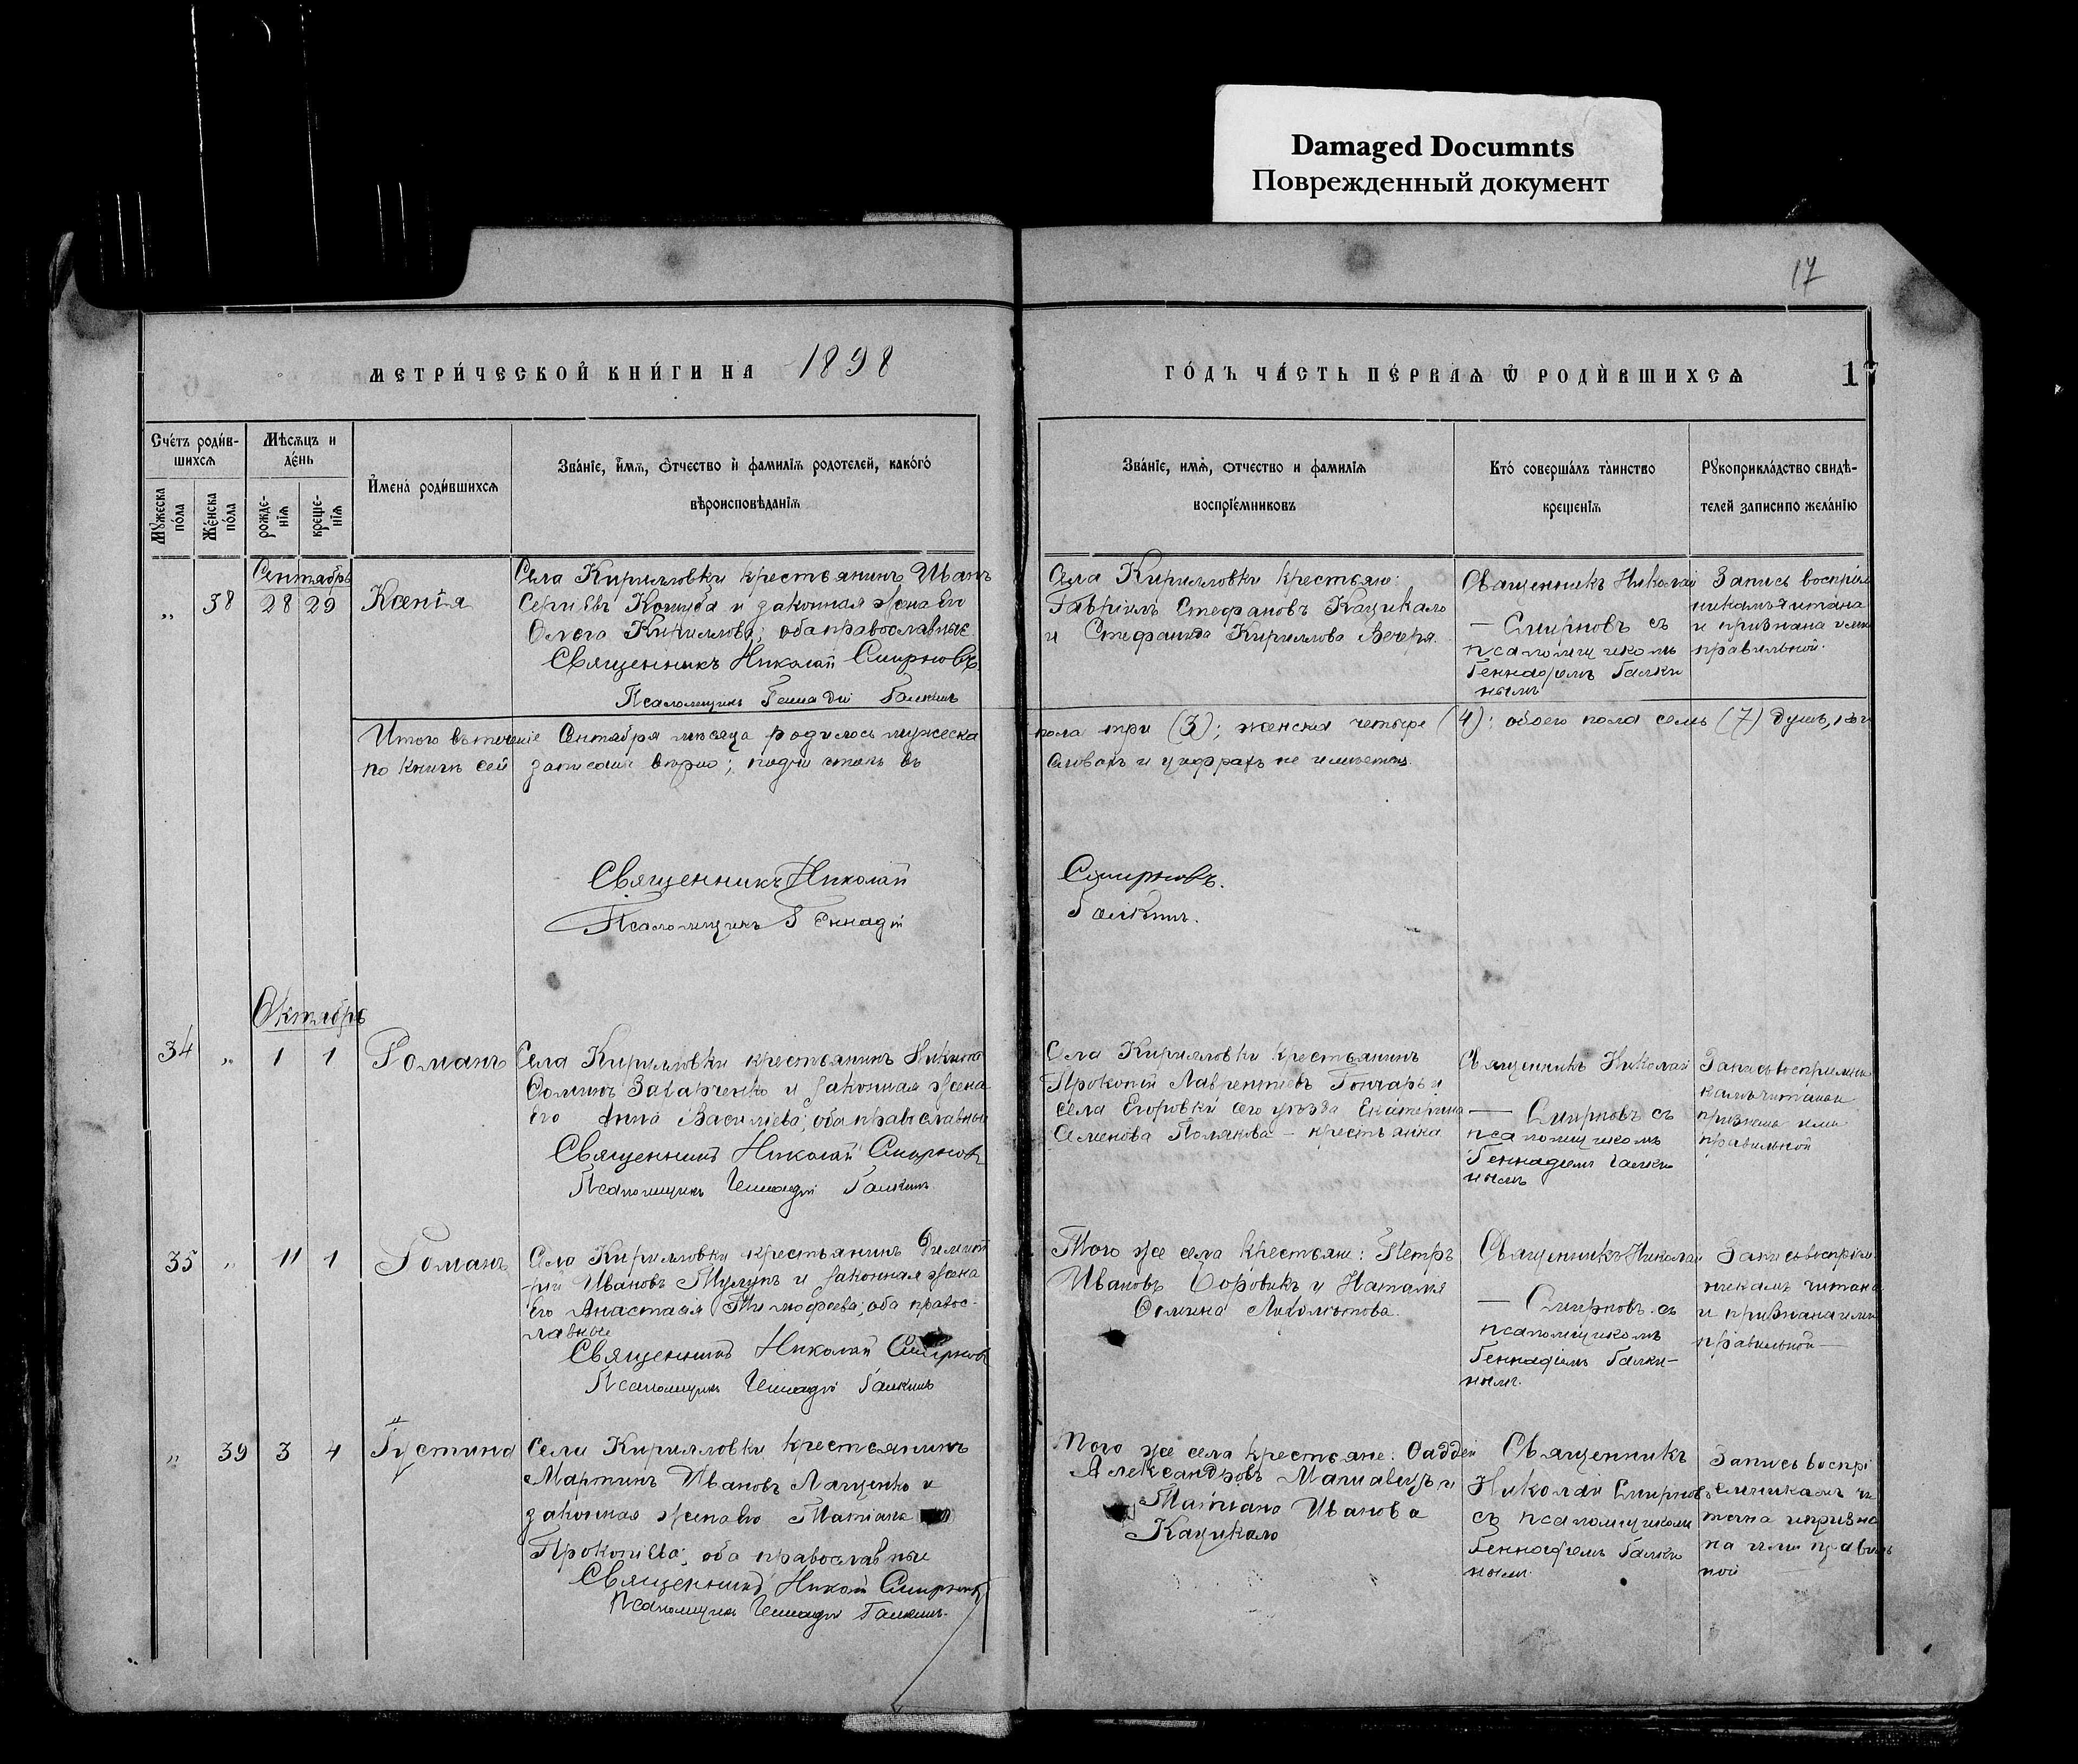 Damaged Documnts
Поврежденный документ
17
МЕТРИ́ЧЕСКОЙ КНИ́ГИ НА 1898
ГО́ДЪ ЧА́СТЬ ПЕ́РВАѦ Ѿ РОДИ́ВШИХСѦ
17
Сче́тъ роди́в-
шихсѧ
Мѣсѧцъ и
де́нь
Мꙋжеска
по́ла
Же́нска
по́ла
рожде-
нїѧ
креще-
нїѧ
И́мена̀ роди́вшихсѧ
Зва́нїе, и́мѧ, о́тчество и҆ фами́лїѧ родителей, како́го
вѣроисповѣ́данїѧ
Зва́нїе, имѧ, отчество и фамилїѧ
воспрїе́мниковъ
Кто́ соверша́лъ та̀инство
крещенїѧ
Рꙋкоприкла́дство свидѣ-
телей записи по жела́нїю
Сентябрь
„ 38 28 29 Ксенія
Села Кирилловки крестьянинъ Иванъ
Сергіевъ и законная жена его
Олега Кириллова; оба православные
Священникъ Николай Смирновъ
Псаломщикъ Геннадій Галкинъ
Села Кирилловки крестьяне:
Гавріилъ Стефановъ Кацикало
и Стефанида Кириллова Вечеря.
Священникъ Николай
— Смирновъ съ
псаломщикомъ
Геннадіемъ Галки
нымъ
Запись воспріем
никамъ читана
и признана ими
правильной.
Итого въ теченіе Сентября мѣсяца родилось мужеска пола три (3); женска четыре (4): обоего пола семь (7) душъ,
по книгѣ сей записана вѣрно; подчистокъ въ словахъ и цифрахъ не имѣется.
Священникъ Николай Смирновъ.
Псаломщикъ Геннадій Галкинъ.
Октябрь
34 „ 1 1 Романъ
Села Кирилловки крестьянинъ Никита
Ѳоминъ Захарченко и законная жена
его Анна Василіева; оба православные
Священникъ Николай Смирновъ
Псаломщикъ Геннадій Галкинъ.
Села Кирилловки крестьянинъ
Прокопій Лаврентіевъ Гончаръ и
села Егоровки сего уѣзда Екатерина
Семенова Полякова — крестьянка
Священникъ Николай
— Смирновъ съ
псаломщикомъ
Геннадіемъ Галки
нымъ
Запись воспріемни
камъ читана и
признана ими
правильной
35 „ 11 1 Романъ
Села Кирилловки крестьянинъ Димит
рій Ивановъ Тулупъ и законная жена
его Анастасія Тимофеева; оба правос-
лавные
Священникъ Николай Смирновъ
Псаломщикъ Геннадій Галкинъ
Того же села крестьяне: Петръ
Ивановъ Боровикъ и Наталія
Ѳомина
Священникъ Николай
— Смирновъ съ
псаломщикомъ
Геннадіемъ Галки-
нымъ.
Запись воспріем
никамъ читана
и признана ими
правильной —
„ 39 3 4 Іустина
Села Кирилловки крестьянинъ
Мартинъ Ивановъ Лащенко и
законная жена его Татіана
Прокопіева; оба православные
Священникъ Николай Смирновъ
Псаломщикъ Геннадій Галкинъ.
Того же села крестьяне: Ѳаддей
Александровъ и
Татіана Иванова
Кацикало
Священникъ
Николай Смирновъ
съ псаломщикомъ
Геннадіемъ Галки
нымъ
Запись воспрі
емникамъ чи
тана и призна
на ими правиль
ной